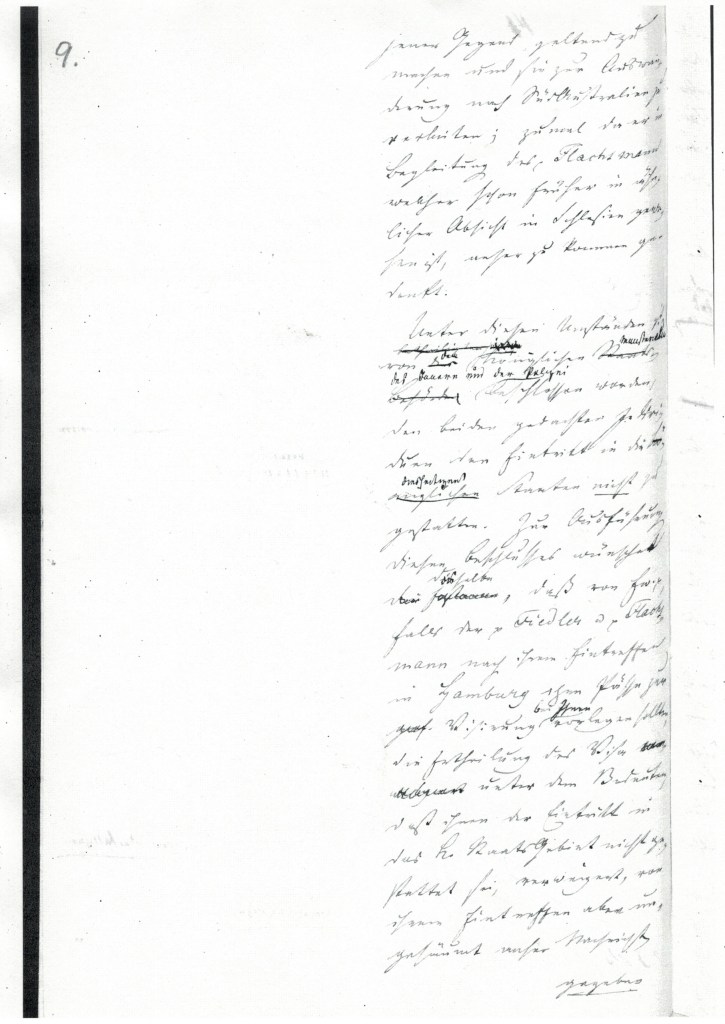 9.
jener Gegend geltend zu
machen und sie zur Auswan-
derung nach Südaustralien zu
verleiten; zumal da er in
Begleitung des p Flachsmann
welcher schon früher in ähn-
licher Absicht in Schlesien gewe-
sen ist, anher zu kommen ge-
denkt.
Unter diesen Umständen ist
von dem Königlichen Ministerium
des Innern und der Polizei
beschlossen worden,
den beiden gedachten Indivi-
duen den Eintritt in die
diesseitigen Staaten nicht zu
gestatten. Zur Ausführung
dieses Beschlusses wünscht
dasselbe, daß von Ew. p,
falls der p Fiedler u p Flachs-
mann nach ihrem Eintreffen
in Hamburg ihre Pässe zur
Visirung bei Ihnen vorlegen sollten,
die Ertheilung des Visa
unter dem Bedeuten,
daß ihnen der Eintritt in
das K. Staats Gebiet nicht ge-
stattet sei, verweigert, von
ihrem Eintreffen aber un-
gesäumt anher Nachricht
gegeben